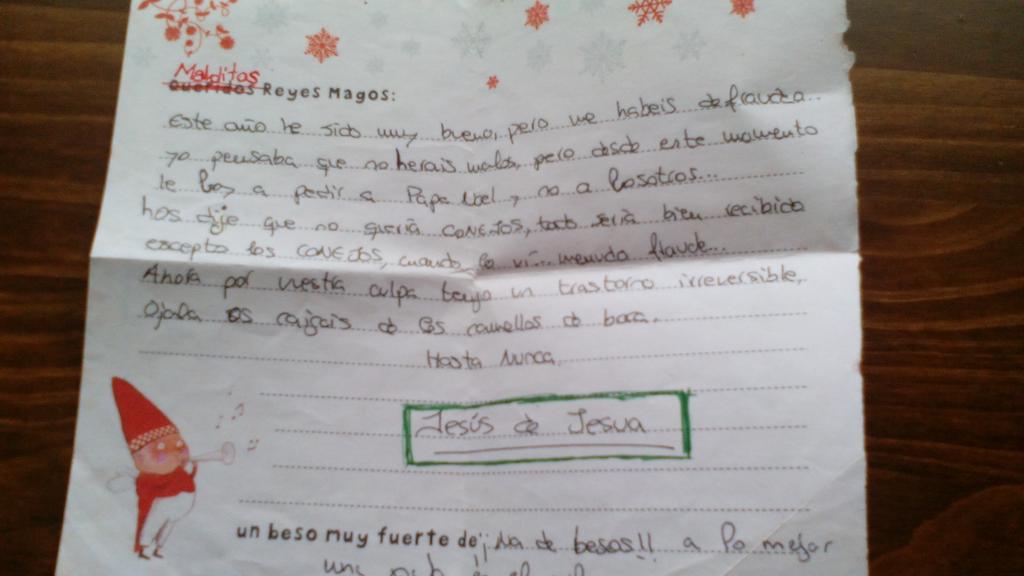 Malditos
Queridos Reyes Magos:
Este año he sido muy bueno, pero me habeis defraudado..
yo pensaba que no herais malos, pero desde este momento
le boy a pedir a Papa Noel y no a bosotros...
hos dije que no quería CONEJOS, todo sería bien recibido
excepto los CONEJOS, cuando lo ví... menudo fraude...
Ahora por uestra culpa tengo un trastorno irreversible,
Ojala os caigais de los camellos de boca.
Hasta Nunca.
Jesús de Jesua
un beso muy fuerte de ¡¡Na de besos!! a lo mejor
una